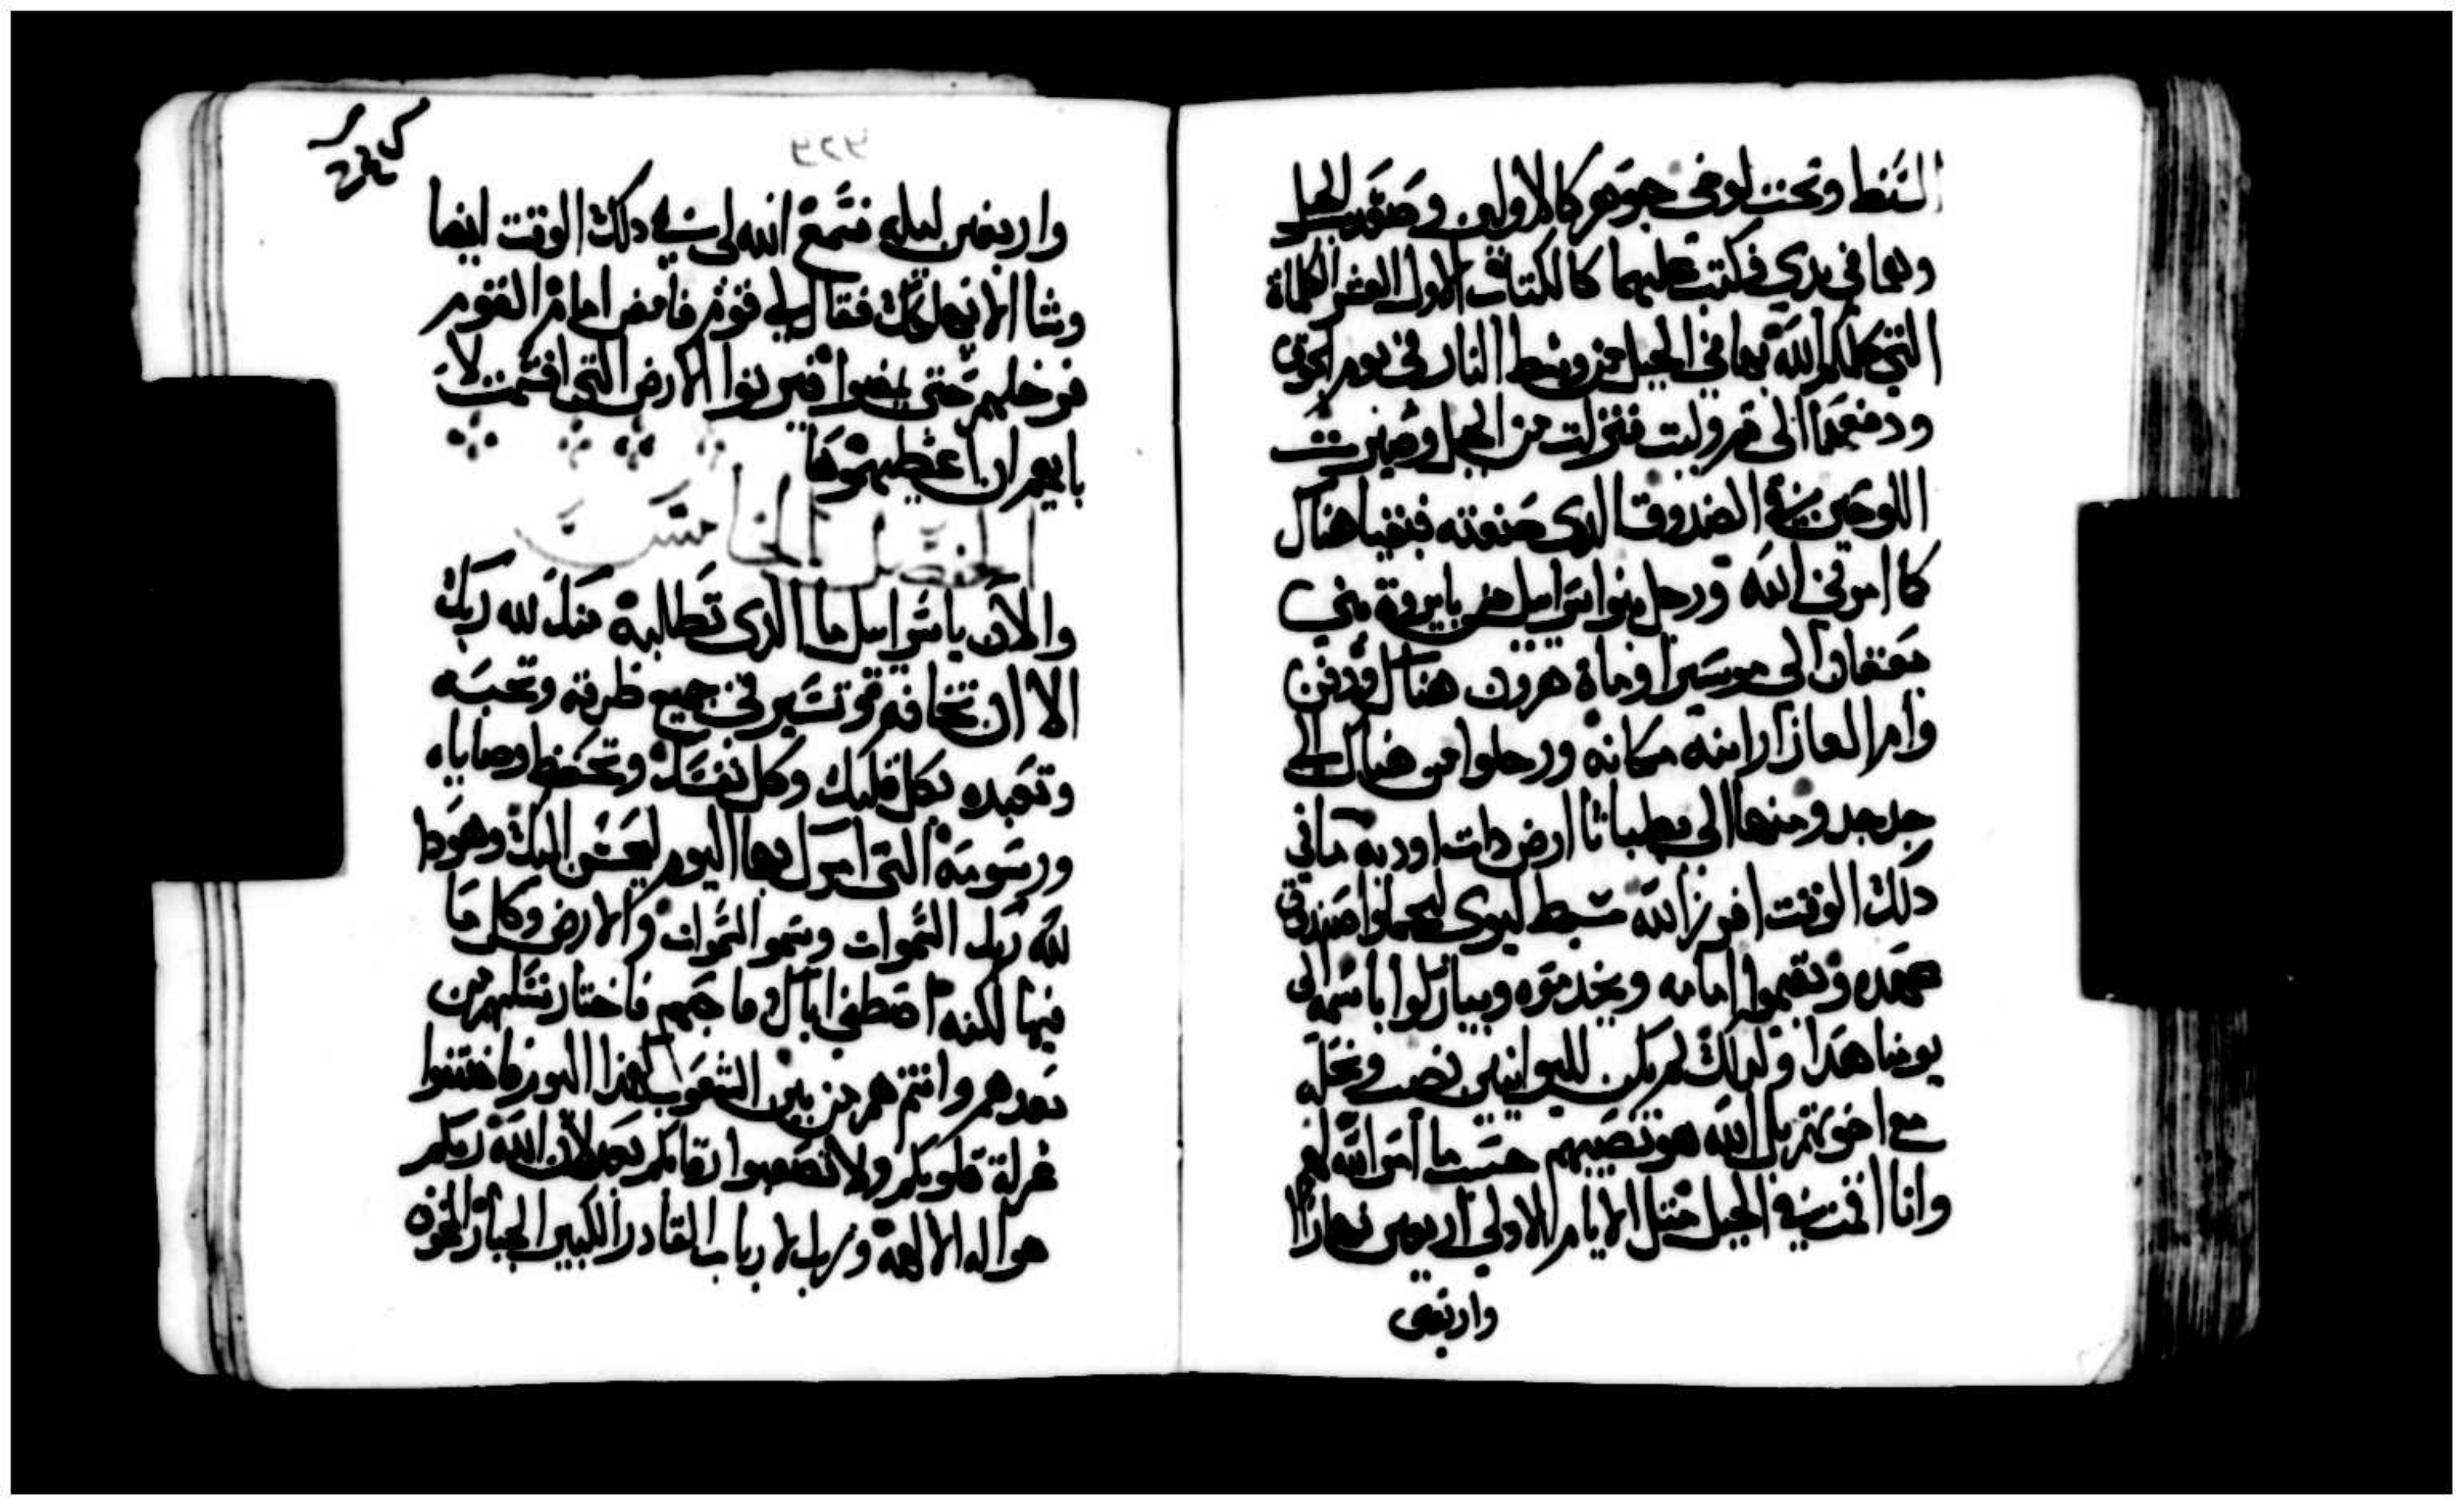 السنط ونحت لوحي جوهر كالاولين وصعدت الجبل
وهما في يدي فكتب عليهما كالكتاب الاول العشر الكلماة
التي كلمكم الله بها في الجبل من وسط النار في يوم الجوق
ودفعهما الي ثم وليت فنزلت من الجبل وصيرت
اللوحين في الصندوق الدي صنعته فبقيا هناك
كما امرني الله ورحل بنوا اسراييل من بايروة بني
يعقان الى موسيرا وماة هرون هناك ودفن
وامر العازار ابنه مكانه ورحلوا من هناك الى
جدجد ومنها الى يطباثا ارض دات اودية ما في
دلك الوقت افرز الله سبط ليوي ليحملوا صندوق
عهده ويقيموا امامه ويخدموه ويباركوا باسمه الى
يومنا هدا ولدلك لم يكن لليوانيين نصب ونحله
مع اخوتهم بل الله هو نصيبهم حسب ما امر الله لهم
وانا اقمت في الجبل مثل الايام الاولي اربعين نهارا
واربعين
٤٢٦
واربعين ليله فسمع الله لي في دلك الوقت ايضا
وشا الا يهلكك فقال لي قوم فامض امام القوم
فرحلهم حتى يمضوا فيرثوا الارض التي اقسمت لا
بايهم ان اعطيهموها
الفصل الخامس
والان يا اسراييل ما الدي تطالبه منك لله ربك
الا ان تخافه وتسير في جميع طرقه وتحبه
وتعبده بكل قلبك وكل نفسك وتحفظ وصاياه
ورسومه التي امرك بها اليوم ليحسن اليك وهودا
لله ربك السموات وسمو السموات والارض وكل ما
فيها لكنه اصطفى اباك وما حبهم فاختار نسلهم من
بعدهم وانتم هم من بين الشعوب كهذا اليوم فاختتنوا
غرلة قلوبكم ولا تصعبوا رقابكم بعد لان الله ربكم
هو اله الالهة ورب الارباب القادر الكبير الجبار المخوف